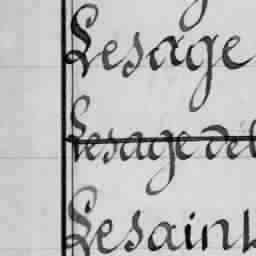 Lesage
Lesage
Lesain